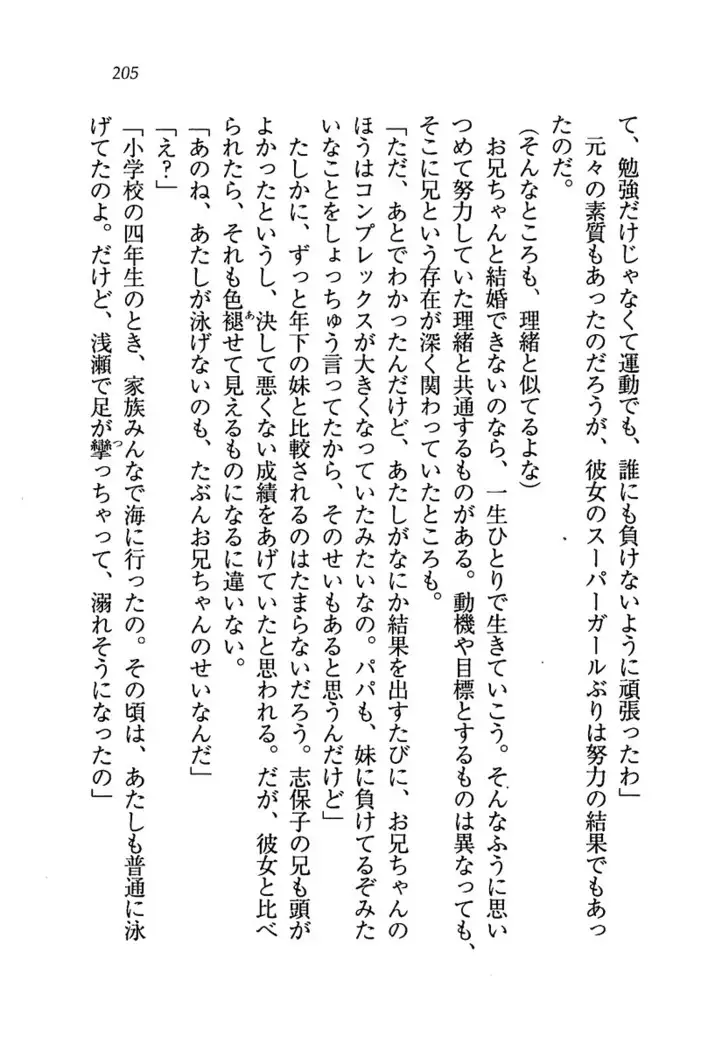 205
て、勉強だけじゃなくて運動でも、誰にも負けないように頑張ったわ」
元々の素質もあったのだろうが、彼女のスーパーガールぶりは努力の結果でもあっ
たのだ。
(そんなところも、理緒と似てるよな)
お兄ちゃんと結婚できないのなら、一生ひとりで生きていこう。そんなふうに思い
つめて努力していた理緒と共通するものがある。動機や目標とするものは異なっても、
そこに兄という存在が深く関わっていたところも。
「ただ、あとでわかったんだけど、あたしがなにか結果を出すたびに、お兄ちゃんの
ほうはコンプレックスが大きくなっていたみたいなの。パパも、妹に負けてるぞみた
いなことをしょっちゅう言ってたから、そのせいもあると思うんだけど」
たしかに、ずっと年下の妹と比較されるのはたまらないだろう。志保子の兄も頭が
よかったというし、決して悪くない成績をあげていたと思われる。だが、彼女と比べ
られたら、それも色褪あせて見えるものになるに違いない。
「あのね、あたしが泳げないのも、たぶんお兄ちゃんのせいなんだ」
「え?」
「小学校の四年生のとき、家族みんなで海に行ったの。その頃は、あたしも普通に泳
げてたのよ。だけど、浅瀬で足が攣つっちゃって、溺れそうになったの」